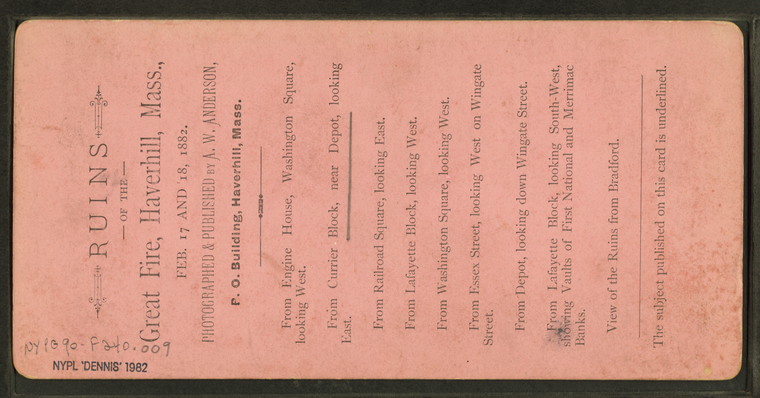 RUINS
— OF THE —
Great Fire, Haverhill, Mass.,
FEB. 17 AND 18, 1882.
PHOTOGRAPHED & PUBLISHED BY A. W. ANDERSON,
P. O. Building, Haverhill, Mass.
From Engine House, Washington Square,
looking West.
From Currier Block, near Depot, looking
East.
From Railroad Square, looking East.
From Lafayette Block, looking West.
From Washington Square, looking West.
From Essex Street, looking West on Wingate
Street.
From Depot, looking down Wingate Street.
From Lafayette Block, looking South-West,
showing Vaults of First National and Merrimac
Banks.
View of the Ruins from Bradford.
The subject published on this card is underlined.
NYPG90-F240.009
NYPL 'DENNIS' 1982